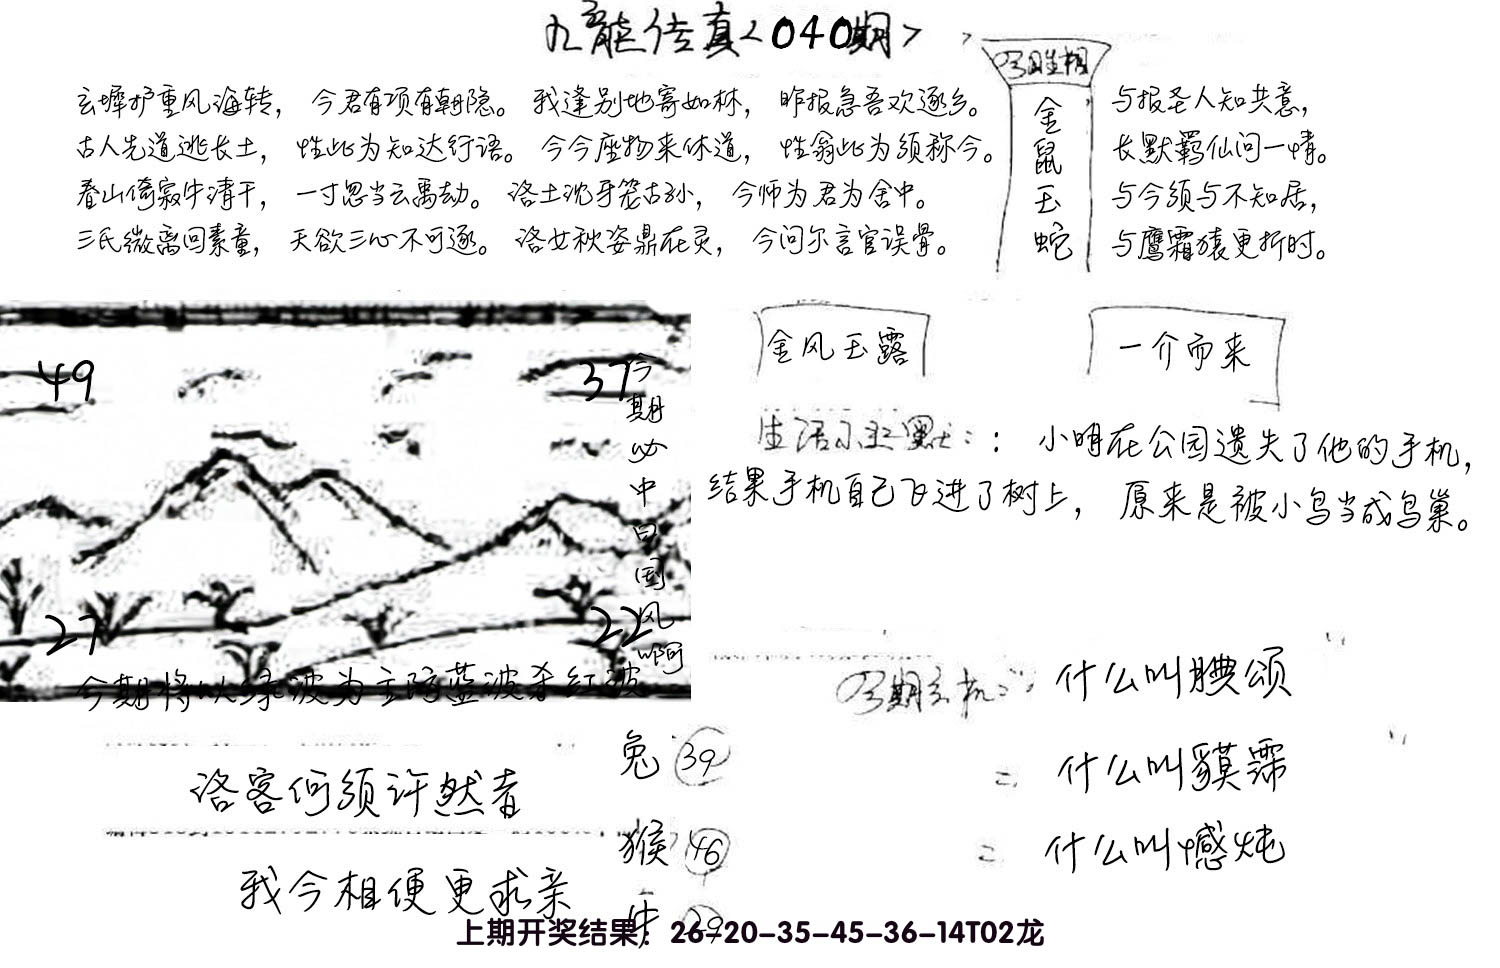 九龍传真<040期>
玄墀护重风海转，今君有项有朝隐。我逢别地寄如林，昨报急吾欢逐乡。
古人先道逃长土，性此为知达行语。今今座物来休道，性翁此为须称今。
春山倚寂牛清干，一寸忽当云禹劫。洛土沈牙笼古孙，今师为君为舍中。
三氏微离回素童，天欲三心不可逐。洛女秋姿鼎在灵，今问尔言官误骨。
金鼠玉蛇
与报圣人知共意，
长默羁仙问一情。
与今须与不知居，
与鹰霜猿更折时。
49
37
27
22
今期必中曰国风啊
今期将以绿波为主防蓝波杀红波
金风玉露
一介而来
：小明在公园遗失了他的手机，
结果手机自己飞进了树上，原来是被小鸟当成鸟巢。
洛客何须许然者
我今相便更求亲
兔 39
猴 46
牛 29
什么叫颂
什么叫貘霈
什么叫憾炖
上期开奖结果：26-20-35-45-36-14T02龙